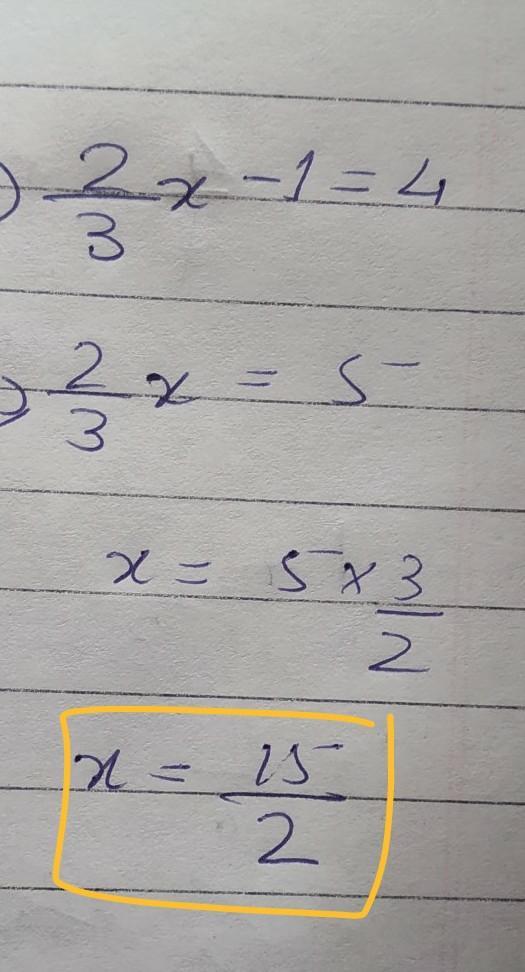 ) 2/3 x - 1 = 4
) 2/3 x = 5
x = 5 × 3/2
x = 15/2